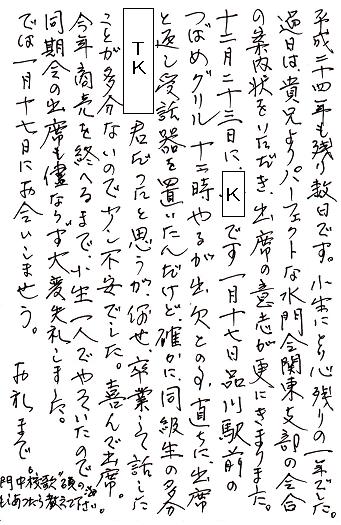 平成二十四年も残り数日です。小生にとり心残りの一年でした。
過日は貴兄よりパーフェクトな水門会関東支部の会合
の案内状をいただき、出席の意志が更にきまりました。
十二月二十三日に、Kです一月十七日品川駅前の
つばめグリル十二時やるが出欠とのう、直ちに出席
と返し受話器を置いたんだけど、確かに同級生の多分
TK君だったと思うが、何せ、卒業して話した
ことが多分ないので少し不安でした。喜んで出席。
今年商売を終へるまで、小生一人でやっていたので
同期会の出席も儘ならず大変失礼しました。
では一月十七日にお会いしませう。お礼まで。
門中校歌
もしあったら教えて下さい。